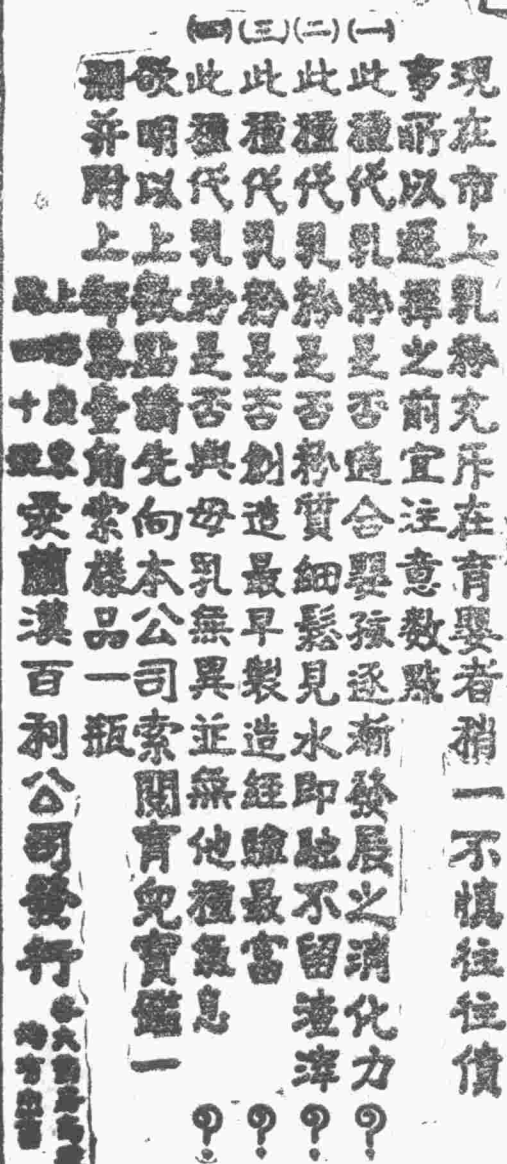 現在市上乳粉充斥在育嬰者稍一不慎往往僨
事所以選擇之前宜注意數點
(一)此種代乳粉是否適合嬰孩逐漸發展之消化力?
(二)此種代乳粉是否粉質細鬆見水即融不留渣滓?
(三)此種代乳粉是否創造最早製造經驗最富?
(四)此種代乳粉是否與母乳無異並無他種氣息?
欲明以上數點請先向本公司索閱育兒寶鑑一
冊并附上郵票壹角索樣品一瓶
上海廣東
路四十號
愛蘭漢百利公司發行
各大藥房
均有出售